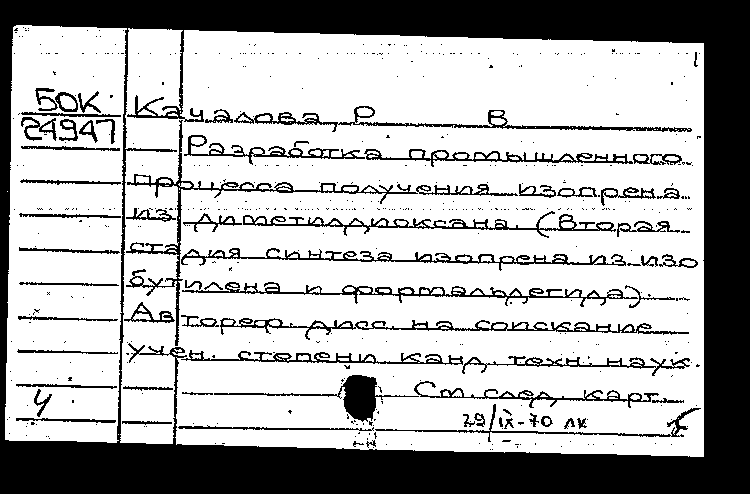 БОК Качалова, Р В
24947 Разработка промышленного
процесса получения изопрена
из диметилдиоксана. (Вторая
стадия синтеза изопрена из изо
бутилена и формальдегида).
Автореф. дисс. на соискание
учен. степени канд. техн. наук.
Ч См. след. карт.
29/IX-70 лк